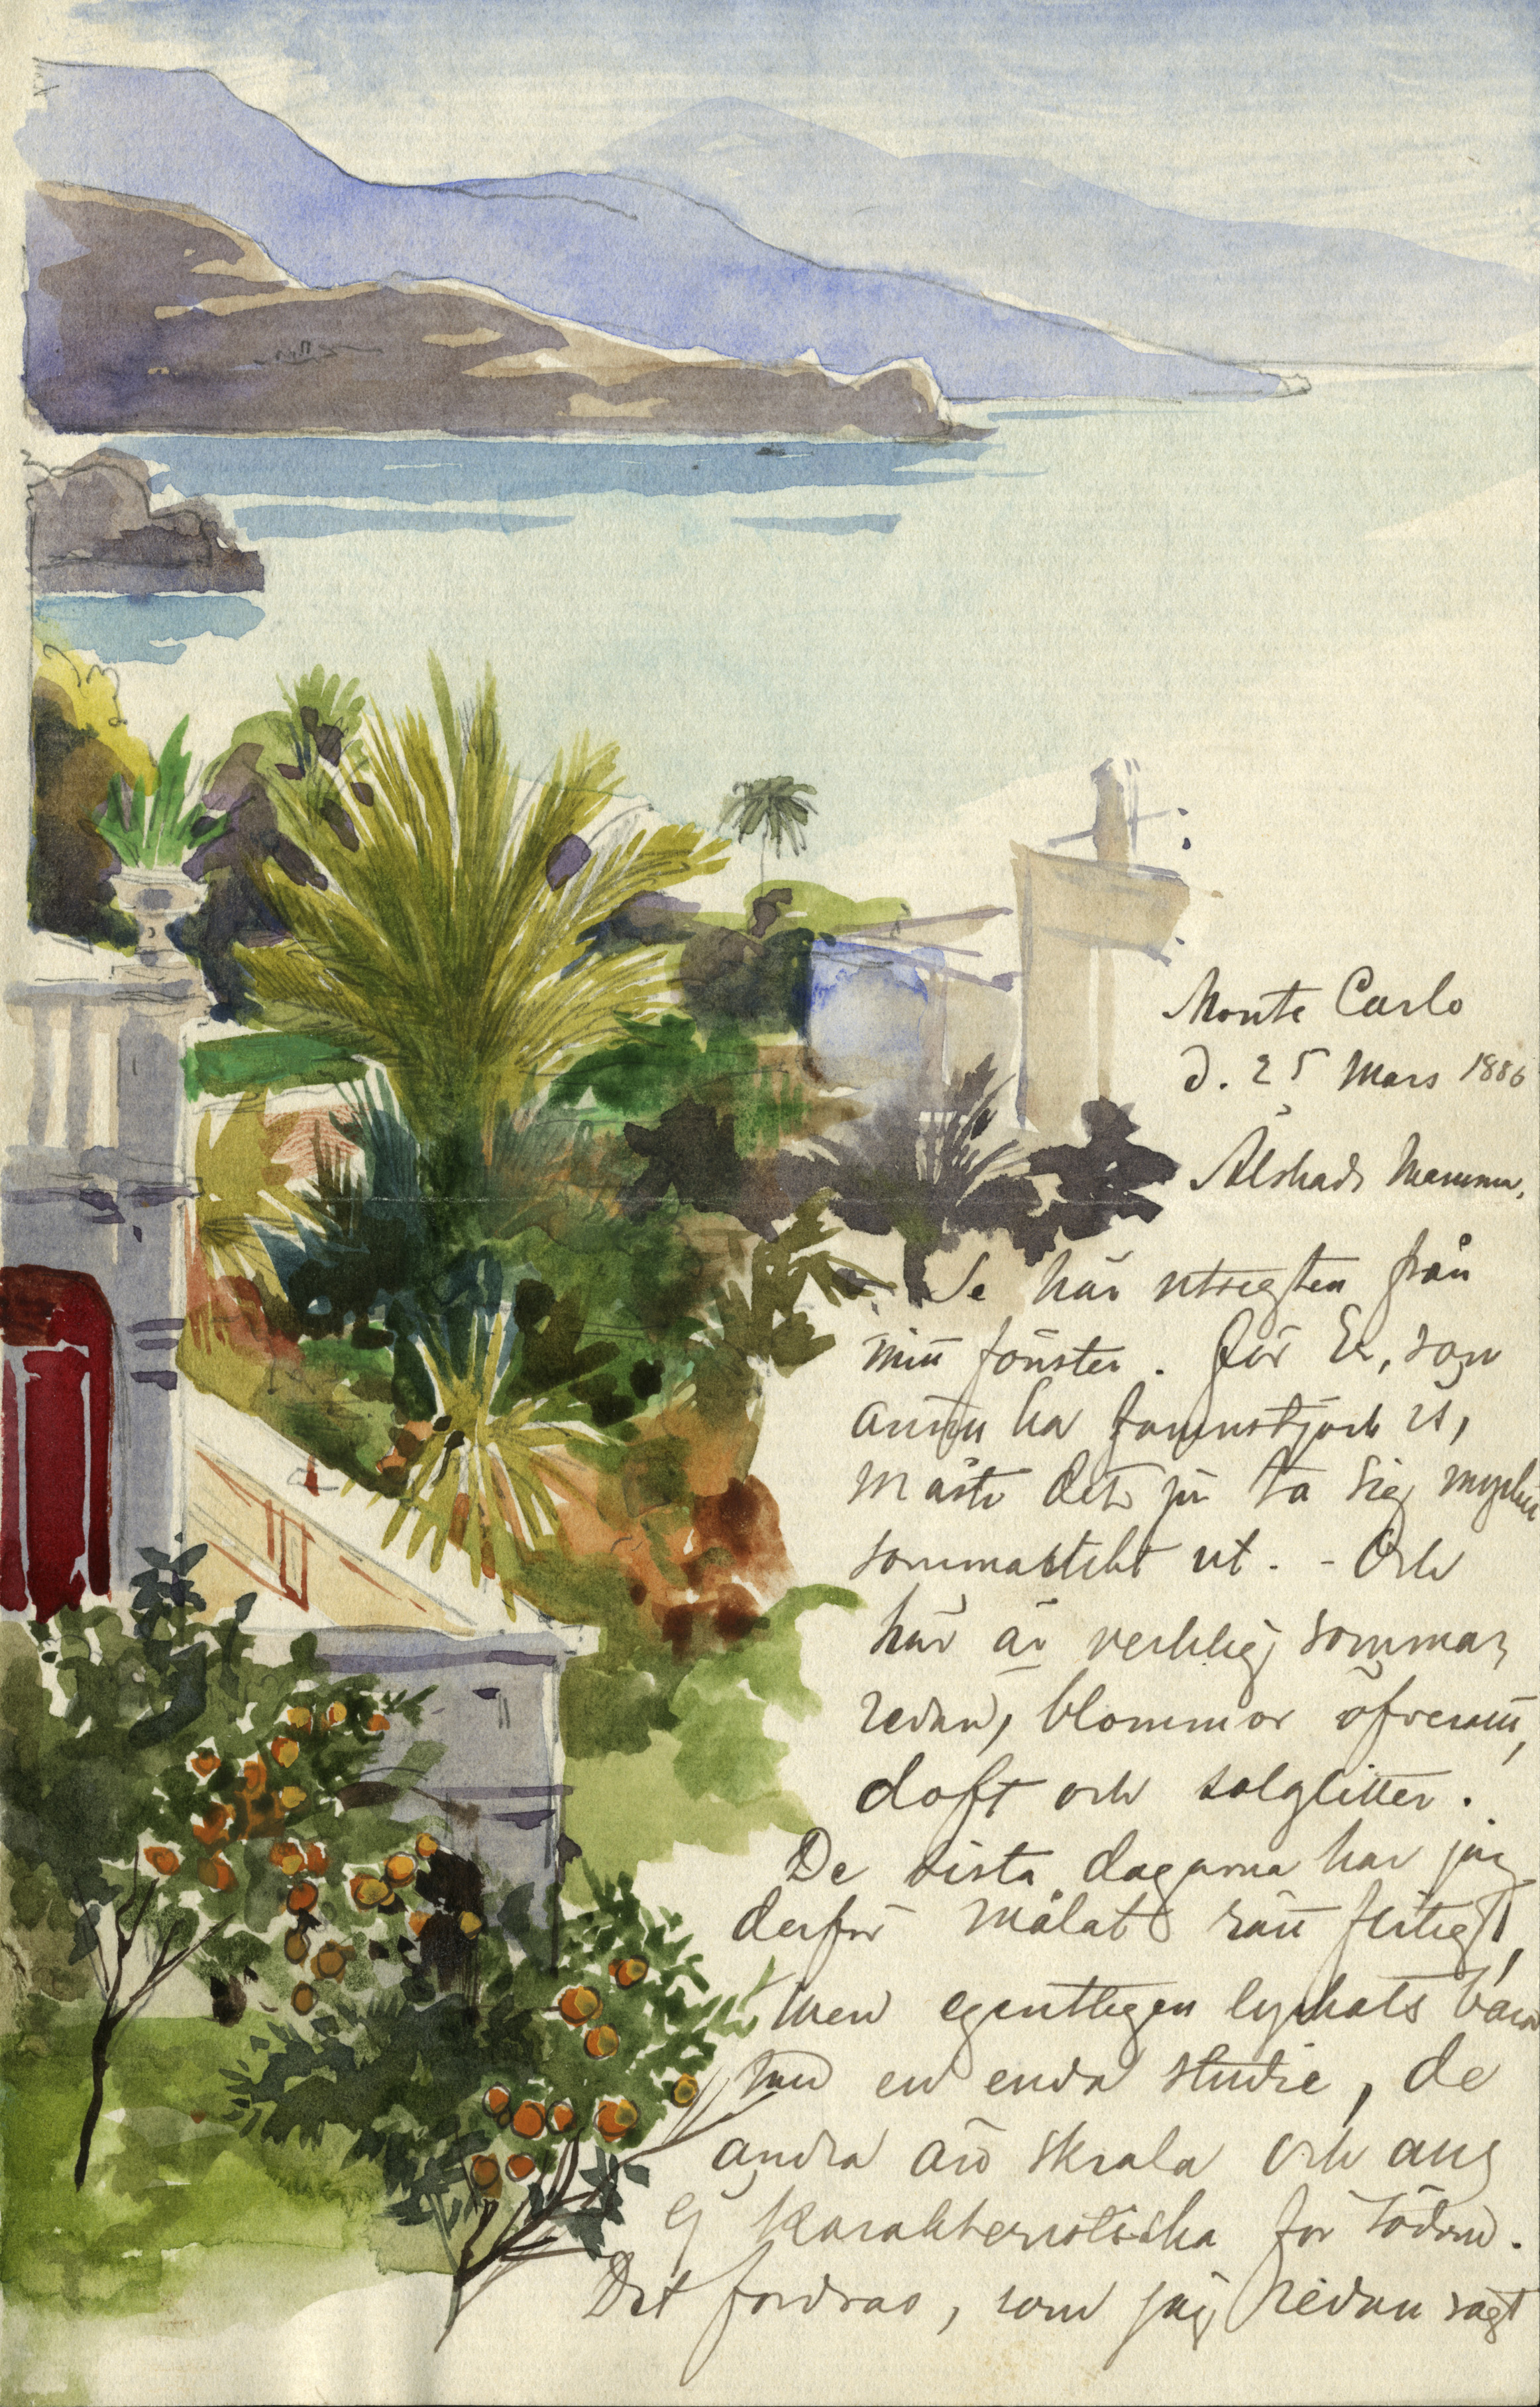 Monte Carlo
d. 25 Mars 1886
Älskade Mamma,
Se här utsigten från
mitt fönster. För Er, som
ännu ha famnstjock is,
måste det ju ta sig mycket
sommarlikt ut. - Och
här är verklig sommar
redan, blommor öfverallt,
doft och solglitter.
De sista dagarna har jag
derför målat rätt flitigt,
men egentligen lyckats bara
med en enda studie, de
andra äro skrala och
ej karakteristiska för Södern.
Det fordras, som jag redan sagt